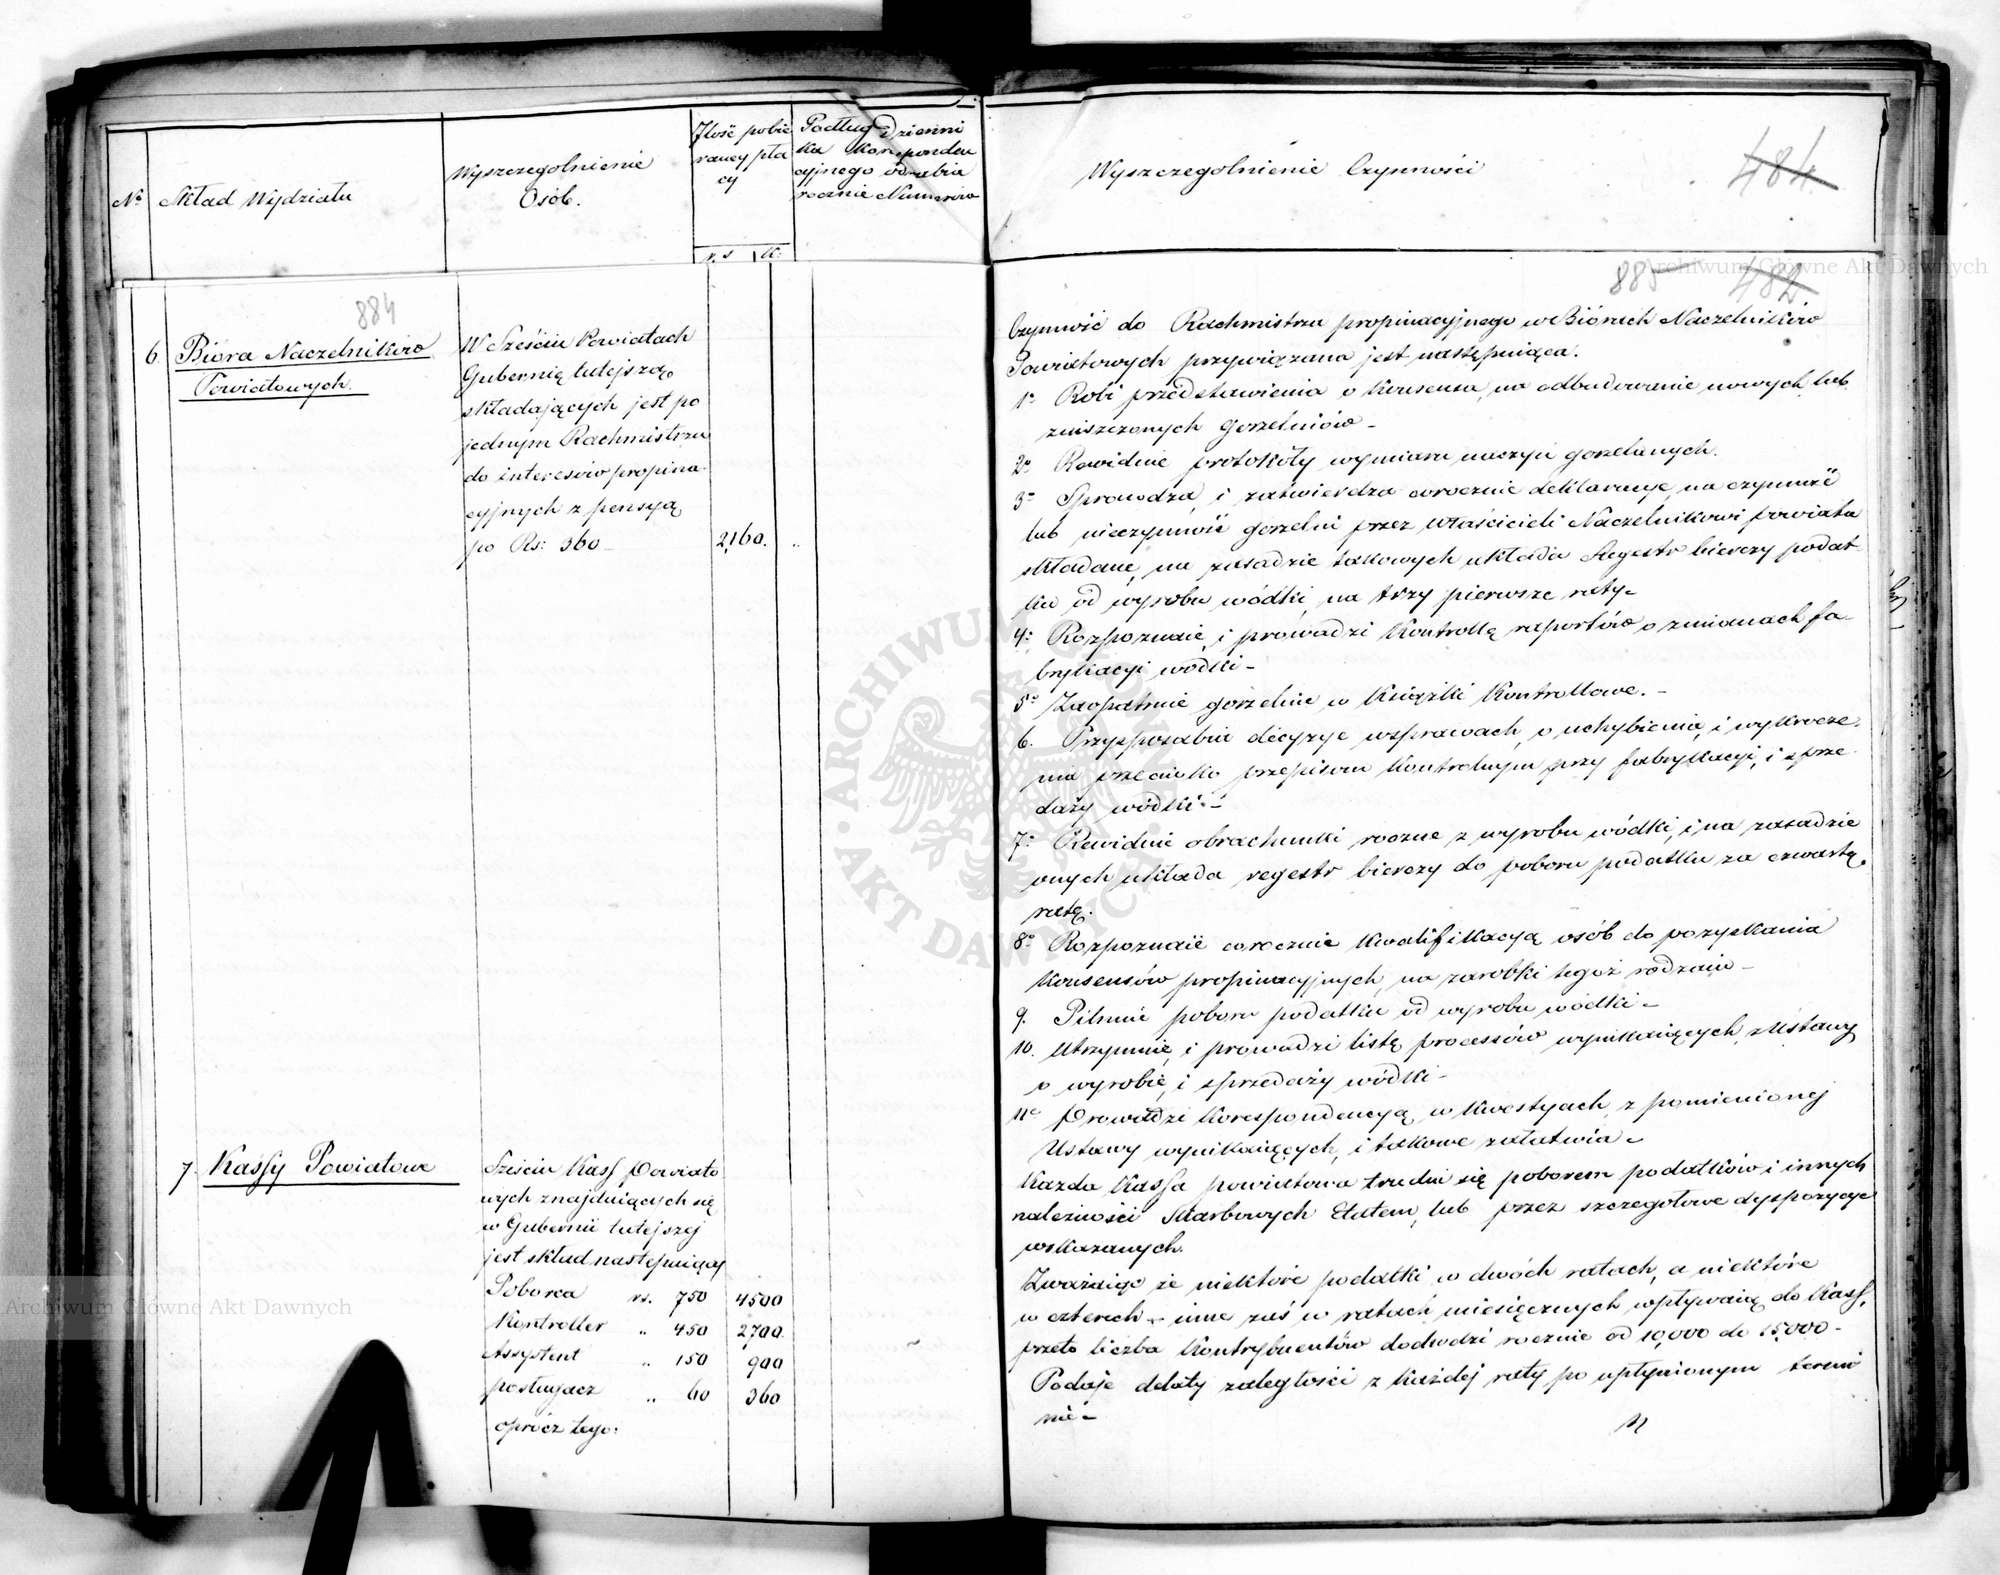 №
Skład Wydziału
Wyszczegolnienie
Osób.
Jlość pobie
raney pła
cy
r. s. k.
Podług Dzienni
ka Korresponden
cyjnego odrabia
rocznie Numerów
884
6. Biora Naczelników
Powiatowych.
W Sześciu Powiatach
Gubernię tutejszą
składających jest po
jednym Rachmistrzu
do interesów propina-
cyjnych z pensyą
po Rs: 360 2,160. "
7. Kassy Powiatowe
Sześciu Kass Powiato
wych znajduiących się
w Gubernii tutejszej
jest skład następuiący
Poborca rs. 750 4500
Kontroller " 450 2,700.
Assystent " 150 900
posługacz " 60 360
oprócz tego:
Wyszczegolnienie Czynności
484
Archiwum Główne Akt Dawnych
885 482
Czynność do Rachmistrza propinacyjnego w Biórach Naczelników
Powiatowych przywiązana jest następuiąca.
1o Robi przedstawienia o Konsensa, na odbudowanie nowych lub
zniszczonych gorzelniów -
2o Rewiduie protokóły wymiaru naczyń gorzelanych.
3o Sprawdza, i zatwierdza corocznie deklaracye, na czynność
lub nieczynność gorzelni przez Właścicieli Naczelnikowi powiatu
składane, na zasadzie takowych układa Regestr bierczy podat-
ku od wyrobu wódki, na trzy pierwsze raty-
4: Rozpoznaie, i prowadzi Kontrollę raportów o zmianach fa-
brykacyi wódki -
5o Zaopatruie gorzelnie w Książki Kontrollowe. -
6. Przysposabia decyzye w sprawach, o uchybienia, i wykrocze-
nia przeciwko przepisom Kontrolnym przy fabrykacyi, i sprze-
daży wódki. -
7: Rewiduie obrachunki roczne z wyrobu wódki, i na zasadzie
onych układa regestr bierczy do poboru podatku za czwartą
ratę.
8o Rozpoznaie corocznie Kwalifikacyą osób do pozyskania
Konsensów propinacyjnych, na zarobki tegoż rodzaiu -
9. Pilnuie poboru podatku od wyrobu wódki -
10. Utrzymuie, i prowadzi listę processów wynikaiących z Ustawy
o wyrobie, i sprzedaży wódki -
11o Prowadzi Korespondencyą w Kwestyach z pomienionej
Ustawy wynikaiących, i takowe załatwia -
Każda Kassa powiatowa trudni się poborem podatków i innych
należności Skarbowych Etatem, lub przez szczegółowe dyspozycye
wskazanych.
Zważaiąc że niektóre podatki w dwóch ratach, a niektóre
w czterech - inne zaś w ratach miesięcznych wpływaią do Kass,
przeto liczba Kontrybuentów dochodzi rocznie od 10,000 do 15,000 -
Podaje delaty zaległości z Każdej raty po upłynionym termi
nie -
ARCHIWUM GŁÓWNE AKT DAWNYCH
Archiwum Główne Akt Dawnych